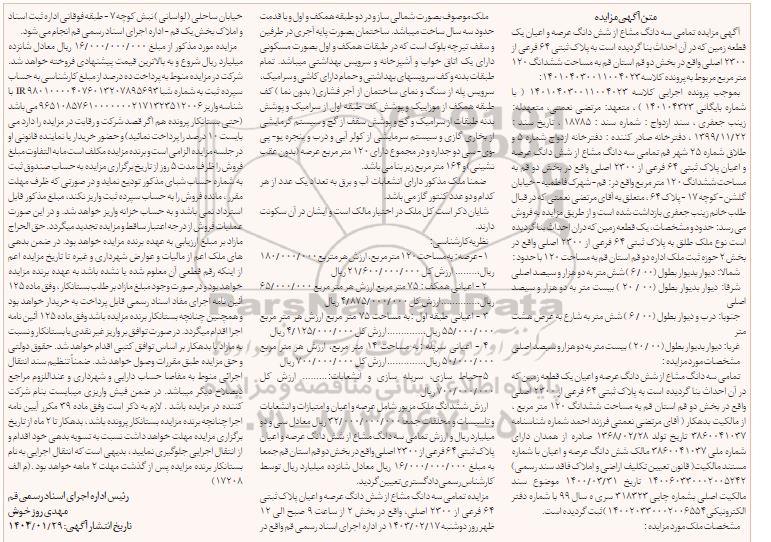 متن آگهی مزایده
آگهی مزایده تمامی سه دانگ مشاع از شش دانگ عرصه و اعیان یک
قطعه زمین که در آن احداث بنا گردیده است به پلاک ثبتی ۶۴ فرعی از
۲۳۰۰ اصلی واقع در بخش دو قم استان قم به مساحت ششدانگ ۱۲۰
متر مربع مربوط به پرونده کلاسه ۱۴۰۱۰۴۰۳۰۰۱۱۰۰۴۰۲۳:
بموجب پرونده اجرایی کلاسه ۱۴۰۱۰۴۰۳۰۰۱۱۰۰۴۰۲۳ ( با
شماره بایگانی ۱۴۰۱۰۴۳۲۳ ) ، متعهد: مرتضی نعمتی ، متعهدله:
زینب جعفری ، سند ازدواج : شماره سند : ۱۸۷۸۵ تاریخ سند :
۱۳۹۹/۱۱/۲۲ ، دفترخانه صادر کننده : دفترخانه ازدواج شماره ۵ و
طلاق شماره ۲۵ شهر قم تمامی سه دانگ مشاع از شش دانگ عرصه
و اعیان پلاک ثبتی ۶۴ فرعی از ۲۳۰۰ اصلی واقع در بخش دو قم به
مساحت ششدانگ ۱۲۰ متر مربع واقع در: قم - شهرک فاطمیه - خیابان
گلشن - کوچه ۱۷ - پلاک ۶۴، متعلق به آقای مرتضی نعمتی که در قبال
طلب خانم زینب جعفری بازداشت شده است و از طریق مزایده به فروش
می رسد: حدود و مشخصات، یک قطعه زمین که در آن احداث بنا گردیده
است نوع ملک طلق به پلاک ثبتی ۶۴ فرعی از ۲۳۰۰ اصلی واقع در
بخش ۲ حوزه ثبت ملک اداره دو قم استان قم به مساحت ۱۲۰ با حدود :
شمالا: دیوار بدیوار بطول (۶/۰۰) شش متر به دو هزار و سیصد اصلی
شرقا: دیوار بدیوار بطول (۲۰/۰۰) بیست متر به دو هزار و سیصد
اصلی
جنوبا: درب و دیوار بطول (۶/۰۰) شش متر به شارع به عرض هشت
متر
غربا: دیوار بدیوار بطول (۲۰/۰۰) بیست متر به دو هزار و سیصد اصلی
مشخصات مورد مزایده :
تمامی سه دانگ مشاع از شش دانگ عرصه و اعیان یک قطعه زمین که
در آن احداث بنا گردیده است به پلاک ثبتی ۶۴ فرعی از ۲۳۰۰ اصلی
واقع در بخش دو قم استان قم به مساحت ششدانگ ۱۲۰ متر مربع ،
از مالکیت بدهکار ( آقای مرتضی نعمتی فرزند احمد شماره شناسنامه
۳۸۶۰۰۴۱۰۳۷ تاریخ تولد ۱۳۶۸/۰۲/۲۸ صادره از همدان دارای
شماره ملی ۳۸۶۰۰۴۱۰۳۷ مالک شش دانگ عرصه و اعیان با شماره
مستند مالکیت ( قانون تعیین تکلیف اراضی و املاک فاقد سند رسمی)
۱۴۰۰۶۰۳۳۰۰۰۲۰۰۵۲۴۲ تاریخ ۱۴۰۰/۰۳/۳۱ موضوع سند
مالکیت اصلی بشماره چاپی ۳۱۸۳۲۳ سری ه سال ۹۹ با شماره دفتر
الکترونیکی ۱۴۰۰۲۰۳۳۰۰۰۲۰۰۶۵۵۴) ثبت گردیده است.
مشخصات ملک مورد مزایده :
ملک موصوف بصورت شمالی ساز و در دو طبقه همکف و اول و با قدمت
حدود سه سال ساخت میباشد. ساختمان بصورت پایه آجری در طرفین
و سقف تیرچه بلوک است که در طبقات همکف و اول بصورت مسکونی
دارای یک اتاق خواب و آشپزخانه و سرویس بهداشتی میباشد. تمام
طبقات بدنه و کف سرویسهای بهداشتی و حمام دارای کاشی و سرامیک،
سرویس پله از سنگ و نمای ساختمان از آجر فشاری( بدون نما ) کف
طبقه همکف از موزاییک و پوشش کف طبقه اول از سرامیک و پوشش
بدنه طبقات از سرامیک و گچ و پوشش سقف از گچ و سیستم گرمایشی
از بخاری گازی و سیستم سرمایشی از کولر آبی و درب و پنجره یو-پی-
وی-سی دوجداره و در مجموع دارای ۱۲۰ متر مربع عرصه (بدون عقب
نشینی) و ۱۶۴ متر مربع زیر بنا می باشد.
ضمنا ملک مذکور دارای انشعابات آب و برق به تعداد یک عدد از هر
کدام و دو عدد کنتور گاز می باشد.
شایان ذکر است کل ملک در اختیار مالک است و ایشان در آن سکونت
دارند.
نظریه کارشناسی:
۱- عرصه: به مساحت ۱۲۰ متر مربع، ارزش هر متر مربع ۱۸۰/۰۰۰/۰۰۰
ریال........... ارزش کل ۲۱/۶۰۰/۰۰۰/۰۰۰ ریال
۲- اعیانی همکف : ۷۵ متر مربع ارزش هر متر مربع ۶۵/۰۰۰/۰۰۰
ریال............ارزش کل ۴/۸۷۵/۰۰۰/۰۰۰ ریال
۳- اعیانی طبقه اول : به مساحت ۷۵ متر مربع ارزش هر متر مربع
۵۵/۰۰۰/۰۰۰ ریال...............ارزش کل ۴/۱۲۵/۰۰۰/۰۰۰ ریال
۴- اعیانی سرپله : به مساحت ۱۴ متر مربع، ارزش هر متر مربع
۵۰/۰۰۰/۰۰۰ ریال...............ارزش کل ۷۰۰/۰۰۰/۰۰۰ ریال
۵- حیاط سازی، سرپله سازی و انشعابات:........... ارزش کل
۷۰۰/۰۰۰/۰۰۰ ریال
ارزش ششدانگ ملک مزبور شامل عرصه و اعیان و امتیازات و انشعابات
و تاسیسات و محلقات جمعا ۳۲/۰۰۰/۰۰۰/۰۰۰ ریال معادل سی و دو
میلیارد ریال و ارزش تمامی سه دانگ مشاع از شش دانگ عرصه و اعیان
پلاک ثبتی ۶۴ فرعی از ۲۳۰۰ اصلی واقع در بخش دو قم استان قم جمعا
به مبلغ ۱۶/۰۰۰/۰۰۰/۰۰۰ ریال معادل شانزده میلیارد ریال توسط
کارشناس رسمی دادگستری تعیین گردید.
مزایده تمامی سه دانگ مشاع از شش دانگ عرصه و اعیان پلاک ثبتی
۶۴ فرعی از ۲۳۰۰ اصلی، واقع در بخش ۲ از ساعت ۹ صبح الی ۱۲
ظهر روز دوشنبه ۱۴۰۳/۰۲/۱۷ در اداره اجرای اسناد رسمی قم واقع در
خیابان ساحلی ( لواسانی ) نبش کوچه ۷ - طبقه فوقانی اداره ثبت اسناد
و املاک بخش یک قم - اداره اجرای اسناد رسمی قم انجام می شود.
مزایده مورد مذکور از مبلغ ۱۶/۰۰۰/۰۰۰/۰۰۰ ریال معادل شانزده
میلیارد ریال شروع و به بالاترین قیمت پیشنهادی فروخته خواهد شد.
شرکت در مزایده منوط به پرداخت ده درصد از مبلغ کارشناسی به حساب
سپرده ثبت به شماره شبا IR ۹۸۰۱۰۰۰۰۴۰۷۶۰۱۳۲۰۷۸۹۵۶۹۳ با
شناسه واریز ۹۶۵۱۰۸۵۷۶۱۰۰۰۰۰۰۰۲۱۷۱۳۲۳۵۱۲۰۰۶ می باشد
(حتی بستانکار پرونده هم اگر قصد شرکت و رقابت در مزایده را دارد می
بایست ۱۰ درصد را پرداخت نمائید) و حضور خریدار یا نماینده قانونی او
در جلسه مزایده الزامی است و برنده مزایده مکلف است مابه التفاوت مبلغ
فروش را ظرف مدت ۵ روز از تاریخ برگزاری مزایده به حساب صندوق ثبت
به شماره حساب شبای مذکور تودیع نماید و در صورتی که ظرف مهلت
مقرر ، مانده فروش را به حساب سپرده ثبت واریز نکند، مبلغ مذکور قابل
استرداد نمی باشد و به حساب خزانه واریز خواهد شد. و در این صورت
عملیات فروش از درجه اعتبار ساقط و مزایده تجدید میگردد. حق الحراج
مازاد بر مبلغ ارزیابی به عهده برنده مزایده خواهد بود. در ضمن بدهی
های ملک اعم از مالیات و عوارض شهرداری و غیره تا تاریخ مزایده اعم
از اینکه رقم قطعی آن معلوم شده یا نشده باشد به عهده برنده مزایده
خواهد بود و در صورت وجود مبلغ مازاد بر طلب بستانکار ، وفق ماده ۱۲۵
آئین نامه اجرای مفاد اسناد رسمی قابل پرداخت به خریدار خواهد بود
و همچنین چنانچه بستانکار برنده مزایده باشد وفق ماده ۱۲۵ آئین نامه
اجرا اقدام میگردد. در صورت توافق بر واریز غیر نقدی با بستانکار و نسبت
به مازاد با بدهکار بر اساس توافق کتبی اقدام خواهد شد. حقوق دولتی
و حق مزایده طبق مقررات وصول خواهد شد. ضمناً تنظیم سند انتقال
اجرائی منوط به مفاصا حساب دارایی و شهرداری و عنداللزوم مراجع
ذیصلاح دیگر میباشد. در ضمن فیش واریزی میبایست بنام شرکت
کننده در مزایده باشد . لازم به ذکر است وفق ماده ۳۹ مکرر آیین نامه
اجرا چنانچه برنده مزایده بستانکار پرونده باشد ، بدهکار تا ۲ ماه از تاریخ
برگزاری مزایده مهلت خواهد داشت نسبت به تسویه بدهی خود اقدام و
از انتقال اجرایی جلوگیری نمایید، بدیهی است که انتقال اجرایی به نام
بستانکار برنده مزایده پس از گذشت مهلت ۲ ماهه خواهد بود .(م الف
۱۷۲۰۸)
رئیس اداره اجرای اسناد رسمی قم
مهدی روز خوش
تاریخ انتشار آگهی: ۱۴۰۴/۰۱/۲۹